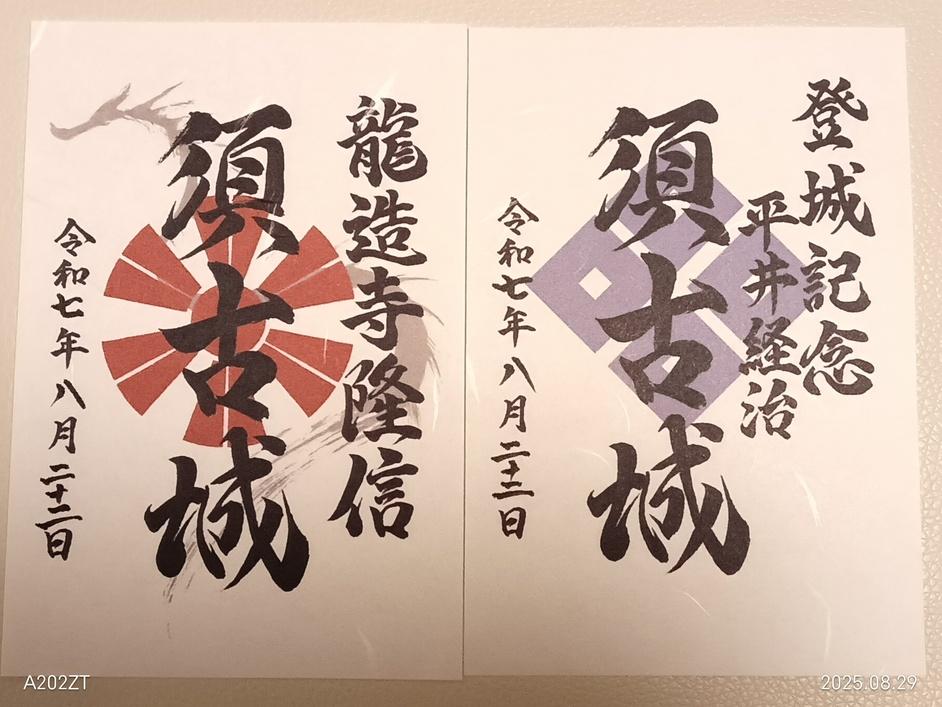 龍造寺隆信
須古城
令和七年八月二十二日
登城記念
平井経治
須古城
令和七年八月二十二日
A202ZT
2025.08.29